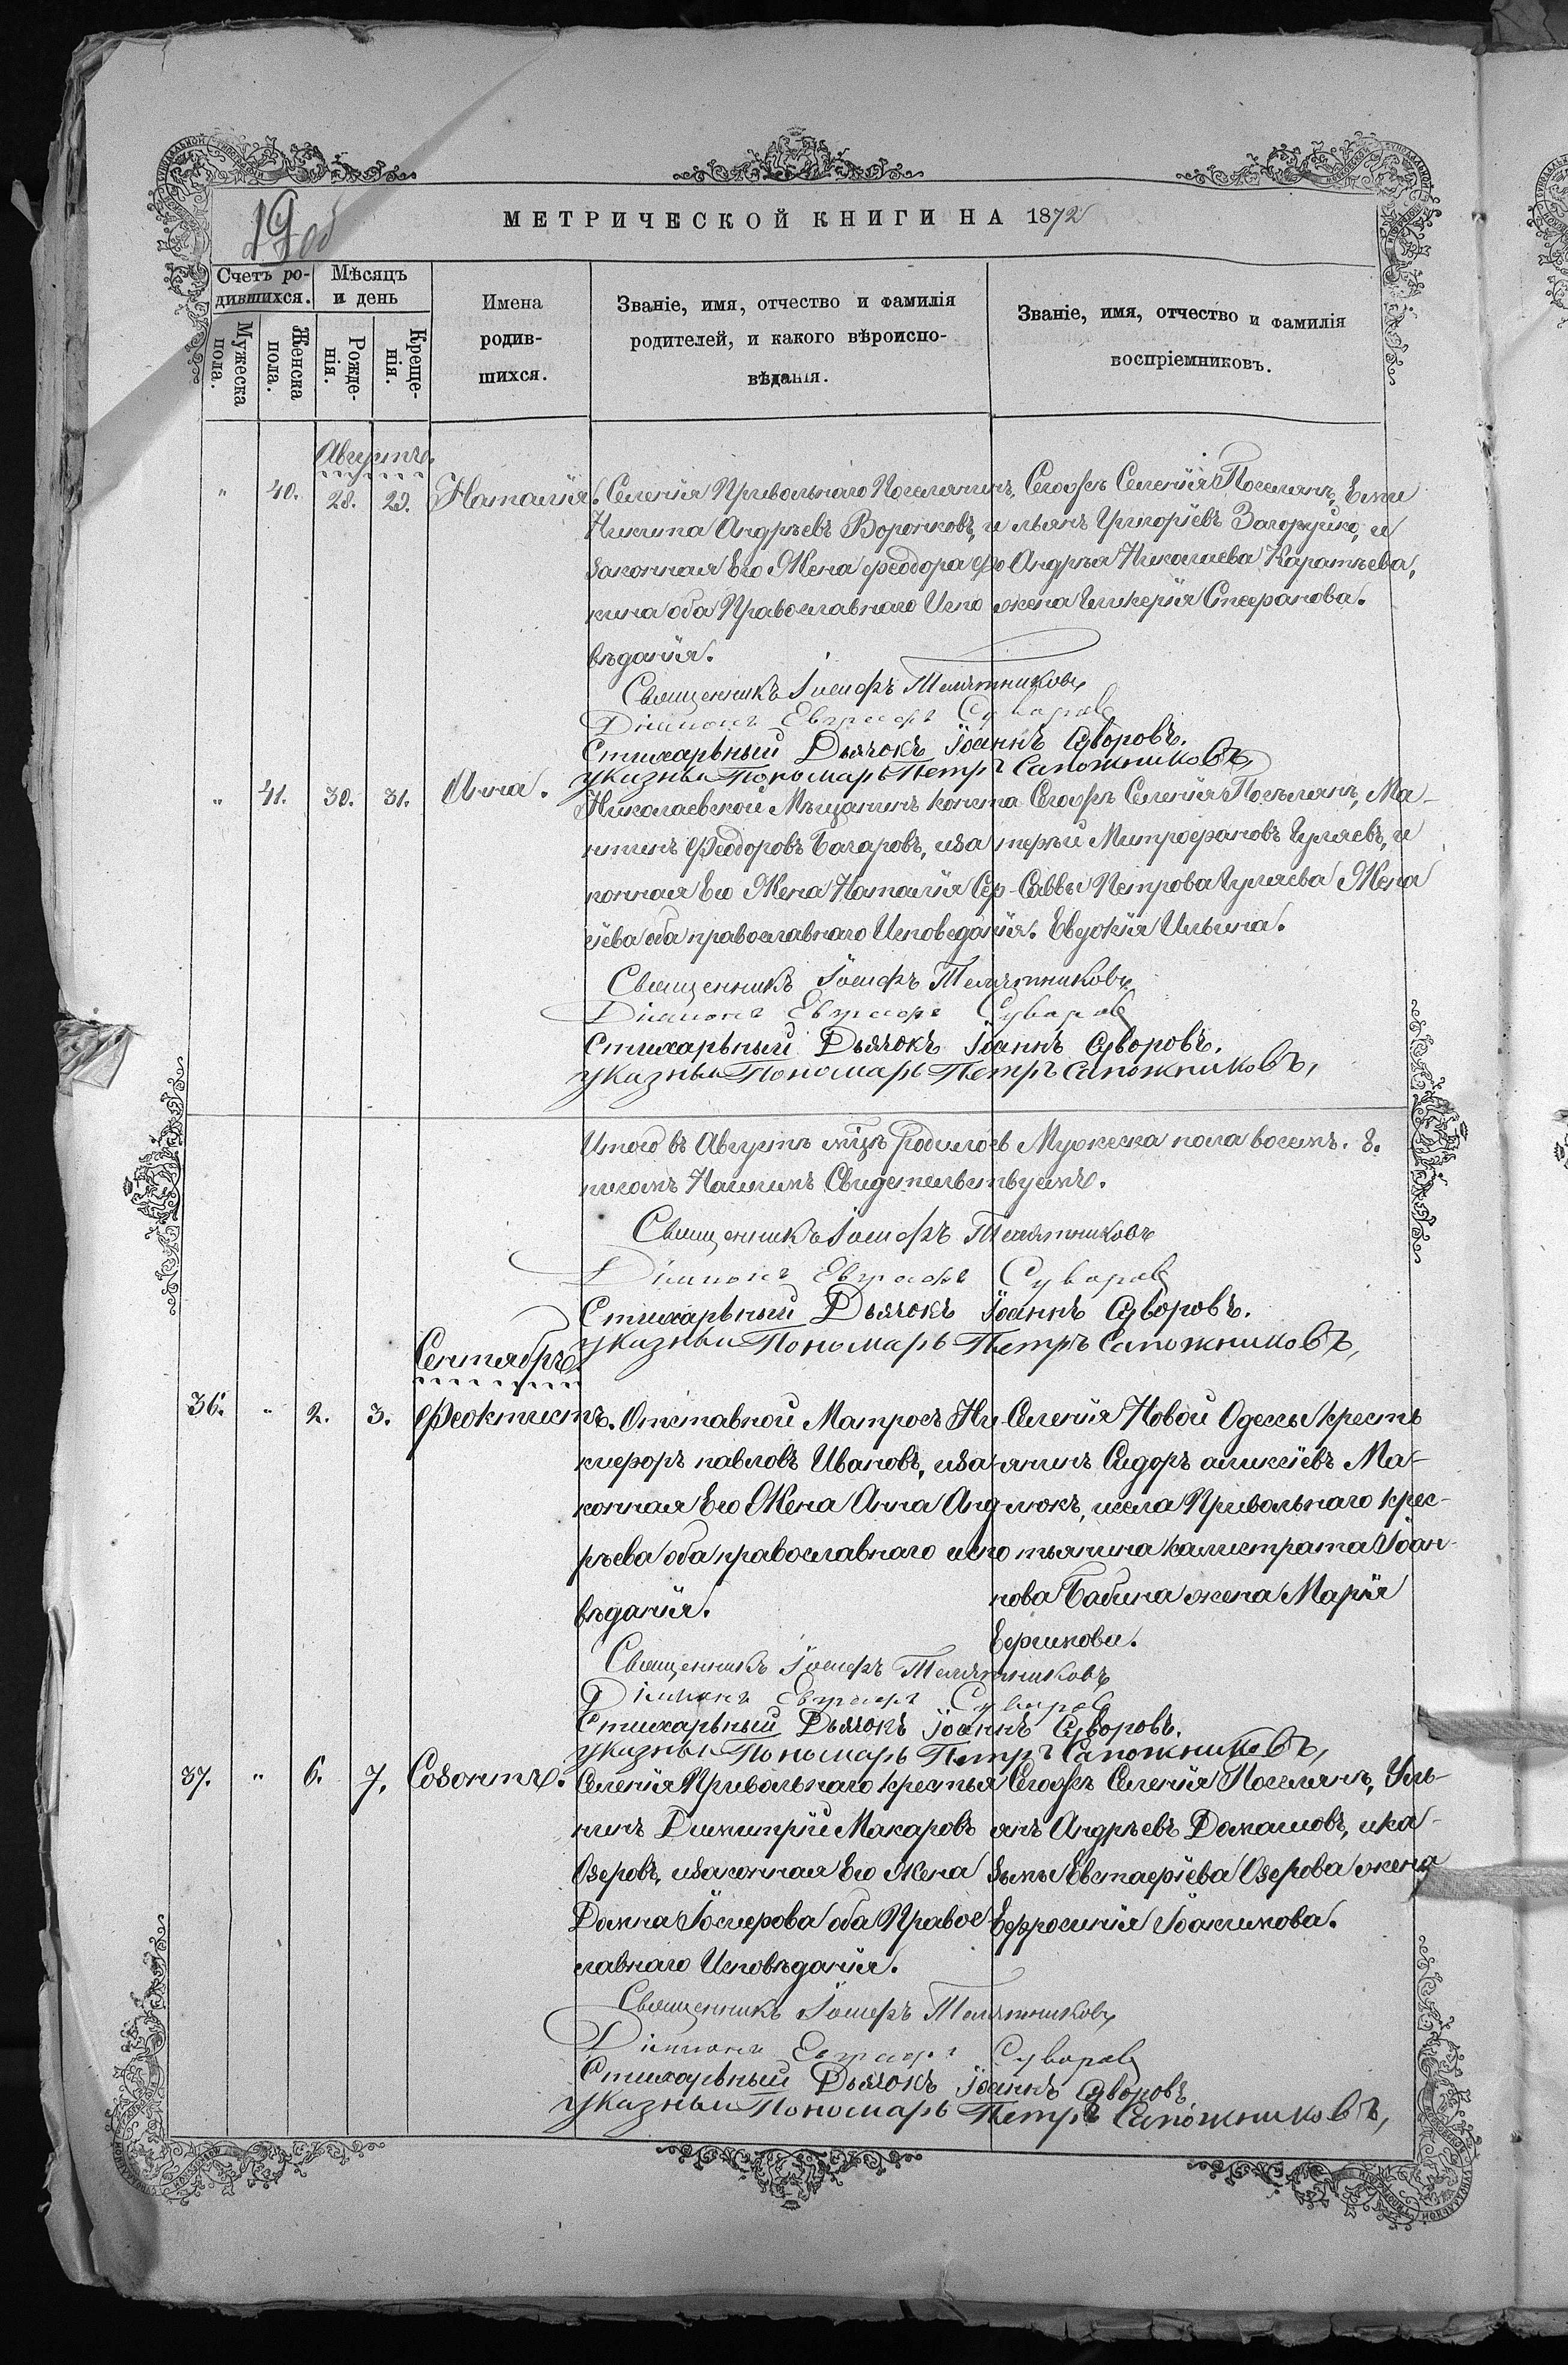 19 об
МЕТРИЧЕСКОЙ КНИГИ НА 1872
Счетъ ро-
дившихся.
Мѣсяцъ
и день
Мужеска
пола.
Женска
пола.
Рожде-
нія.
Креще-
нія.
Имена
родив-
шихся.
Званіе, имя, отчество и фамилія
родителей, и какого вѣроиспо-
вѣданія.
Званіе, имя, отчество и фамилія
воспріемниковъ.
Августъ.
" 40. 28. 29. Наталія.
Селенія Привольнаго Поселянинъ,
Никита Андрѣевъ Воронковъ, и
законная Его Жена Феодора Фо
кина оба Православнаго Испо
вѣданія.
Сегожъ Селенія Поселянъ, Еми
льянъ Григоріевъ Загоруйко, и
Андрѣя Николаева Каратѣева,
жена Гликерія Стефанова.
Священникъ Іосифъ Телятниковъ
Діаконъ Евграфъ Суворовъ
Стихарьный Дьячокъ Іоаннъ Суворовъ.
Указный Пономарь Петръ Сапожниковъ,
" 41. 30. 31. Анна.
Николаевской Мѣщанинъ Конста
нтинъ Феодоровъ Богаровъ, иза
конная Его Жена Наталія Сер-
гіева оба православнаго Исповеданія.
Сегожъ Селенія Посѣлянъ, Ма-
терѣй Митрофановъ Гуляевъ, и
Саввы Петрова Гуляева Жена
Евдокія Ильина.
Священникъ Іосифъ Телятниковъ
Діаконъ Евграфъ Суворовъ
Стихарьный Дьячокъ Іоаннъ Суворовъ.
Указный Пономарь Петръ Сапожниковъ,
Итого въ Августѣ мцѣ родилось Мужеска пола восемь. 8.
Нашимъ Свидетельствуемъ.
Священникъ Іосифъ Телятниковъ
Діаконъ Евграфъ Суворовъ
Стихарьный Дьячокъ Іоаннъ Суворовъ.
Указный Пономарь Петръ Сапожниковъ,
Сентябрь.
36. " 2. 3. Феоктистъ.
Отставной Матросъ Ни-
кифоръ павловъ Ивановъ, иза
конная Его Жена Анна Анд
рѣева оба православнаго испо
вѣданія.
Селенія Новой Одессы кресть
янинъ Сидоръ аликсіевъ Ма-
люкъ, исела Привольнаго крес-
тьянина калистрата Іоан-
нова Бабина жена Марія
Ефимова.
Священникъ Іосифъ Телятниковъ
Діаконъ Евграфъ Суворовъ
Стихарьный Дьячокъ Іоаннъ Суворовъ.
Указный Пономарь Петръ Сапожниковъ,
37. " 6. 7. Созонтъ.
Селенія Привольнаго крестья
нинъ Димитрій Макаровъ
Озеровъ, изаконная Его Жена
Домна Іосифова оба Правос
лавнаго Исповѣданія.
Сегожъ Селенія Поселянъ, Уль-
янъ Андрѣевъ Домашовъ, ика-
зьмы Евстафіева Озерова жена
Ефросинія Іоакимова.
Священникъ Іосифъ Телятниковъ
Діаконъ Евграфъ Суворовъ
Стихарьный Дьячокъ Іоаннъ Суворовъ
Указный Пономарь Петръ Сапожниковъ,